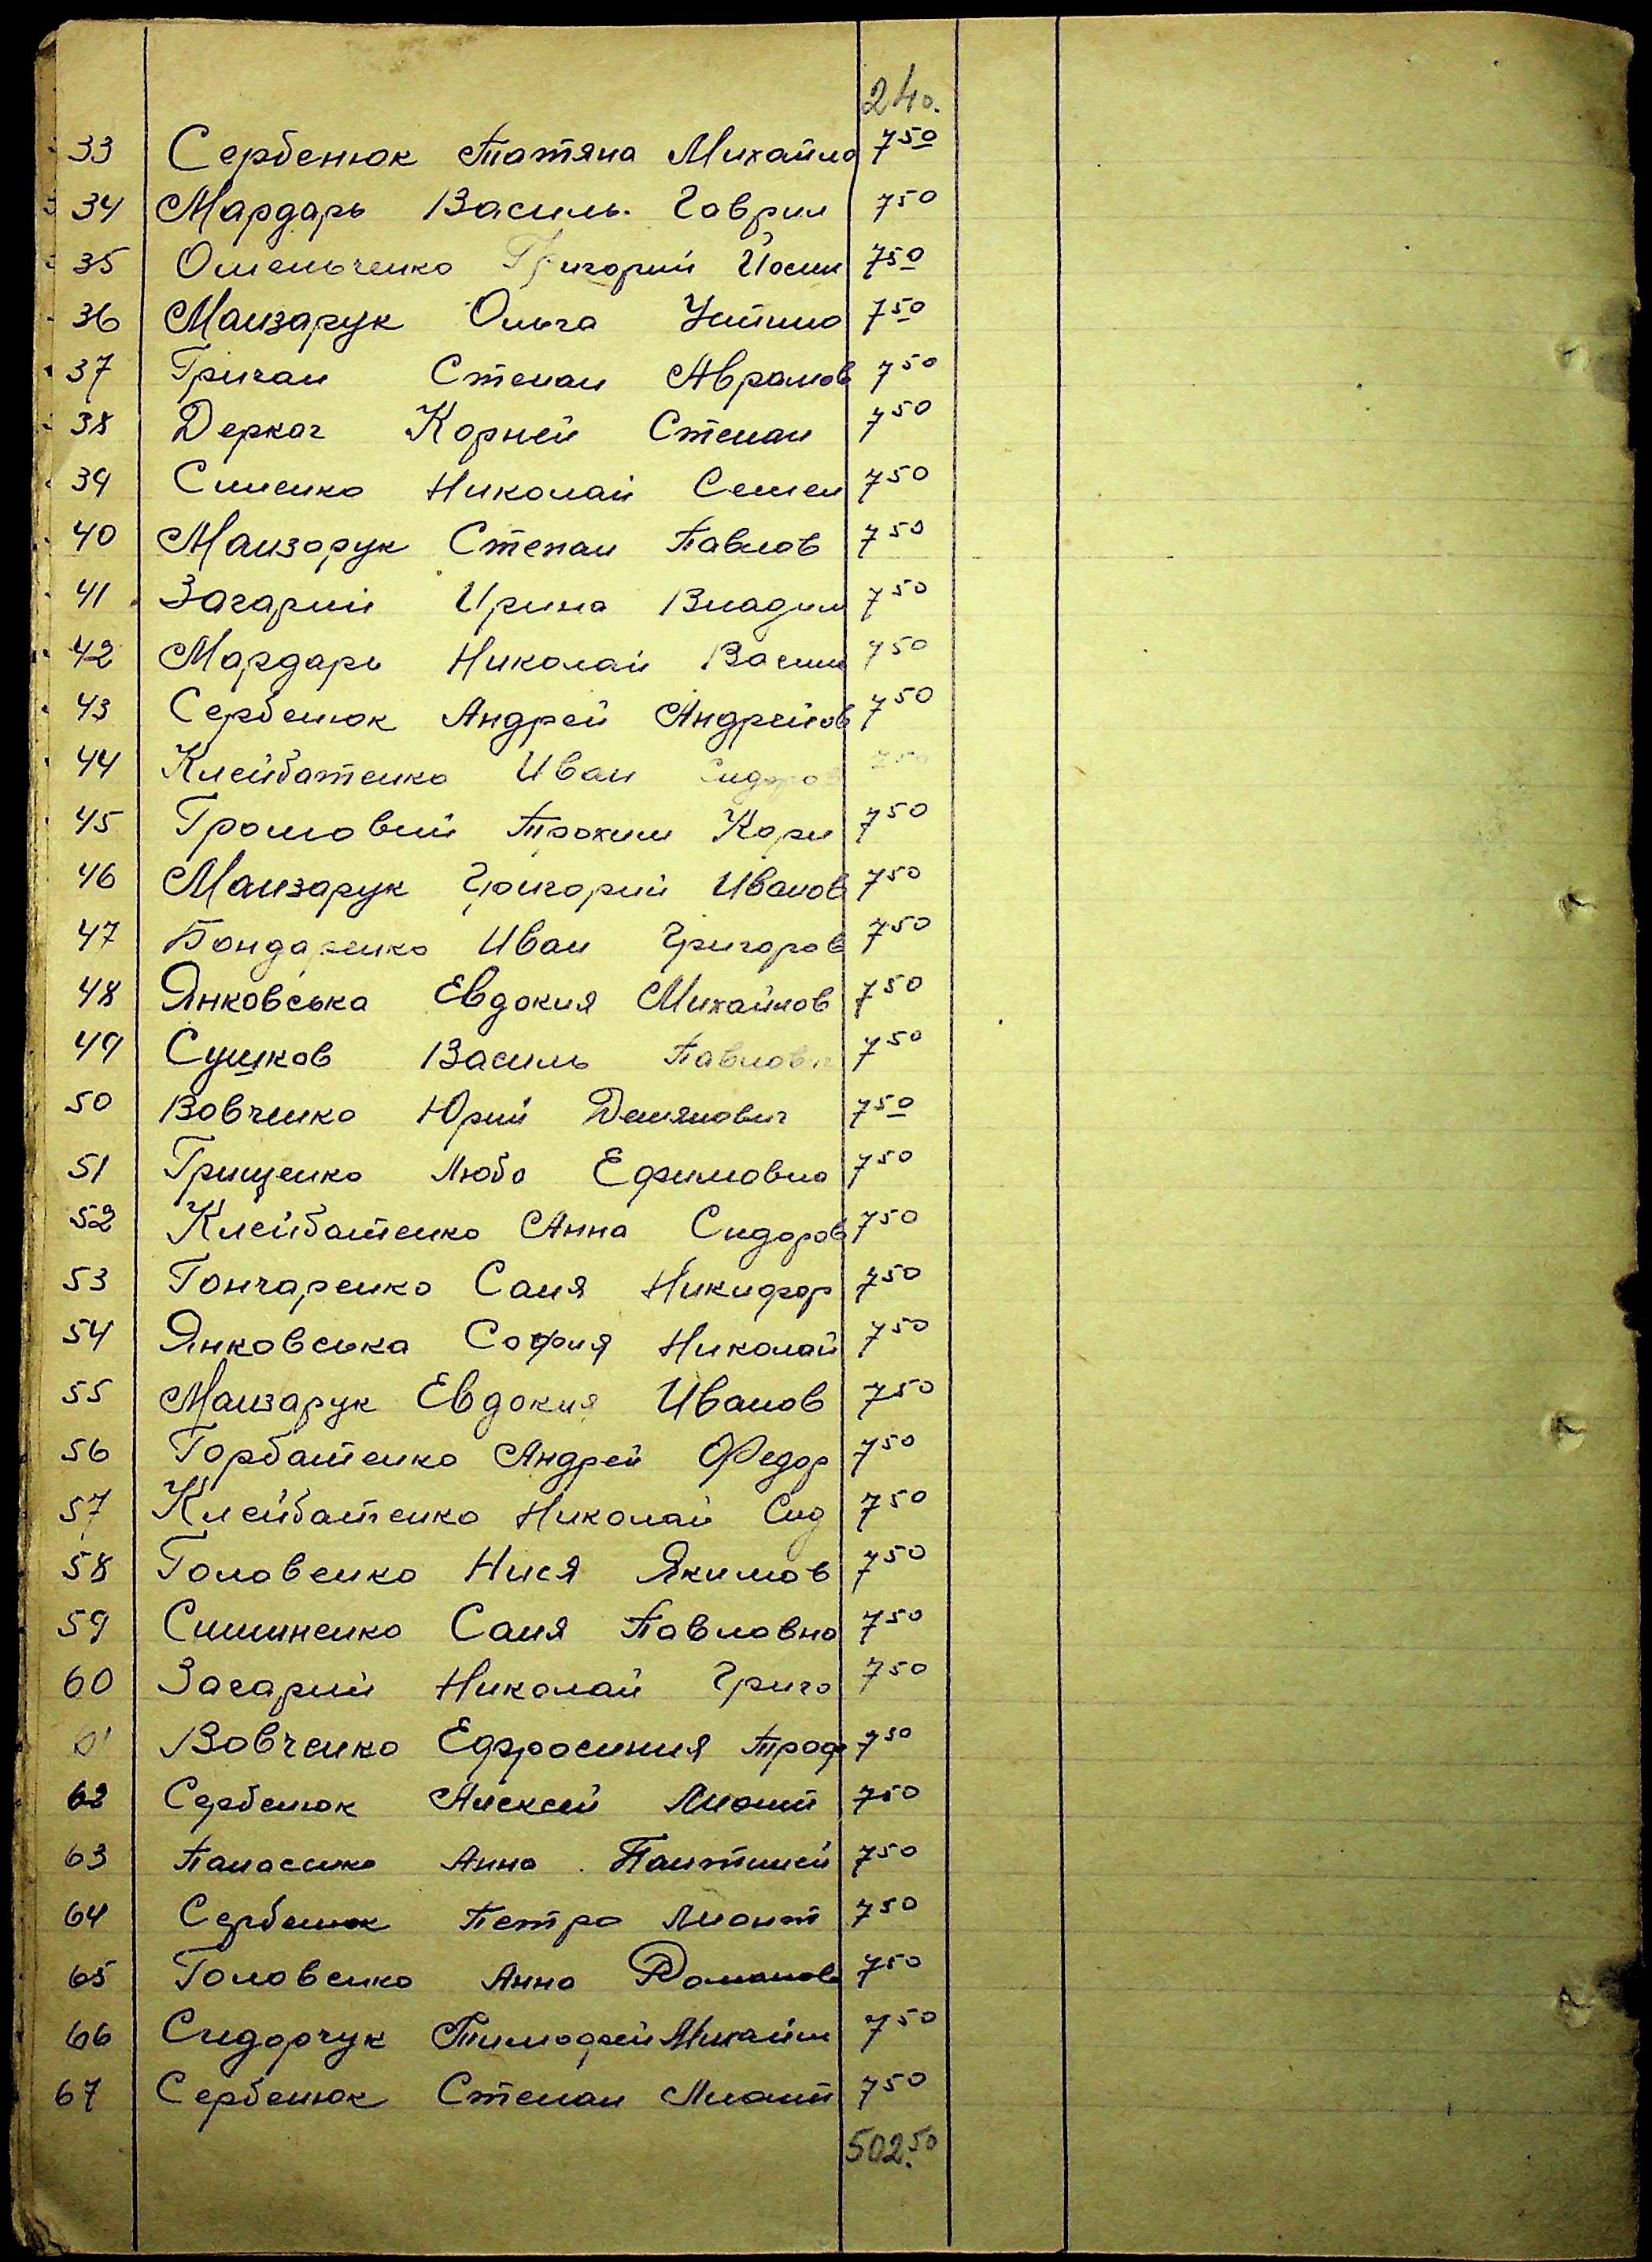 24о.
33 Сербенюк Татяна Михайло 7 50
34 Мардарь Василь Гаврил 7 50
35 Омельченко Григорий Йосип 7 50
36 Манзарук Ольга Устино 7 50
37 Гричан Степан Аврамов 7 50
38 Деркач Корней Степан 7 50
39 Сименко Николай Семен 7 50
40 Манзарук Степан Павлов 7 50
41 Загарий Ирина Владим 7 50
42 Мардарь Николай Васил 7 50
43 Сербенюк Андрей Андрейов 7 50
44 Клейбатенко Иван Сидоров 7 50
45 Громовий Трохим Корн 7 50
46 Манзарук Григорий Иванов 7 50
47 Бондаренко Иван Григоров 7 50
48 Янковська Евдокия Михайлов 7 50
49 Сушков Василь Павлович 7 50
50 Вовченко Юрий Демянович 7 50
51 Грищенко Люба Ефимовна 7 50
52 Клейбатенко Анна Сидоров 7 50
53 Гончаренко Саня Никифор 7 50
54 Янковська София Николай 7 50
55 Манзарук Евдокия Иванов 7 50
56 Горбатенко Андрей Федор 7 50
57 Клейбатенко Николай Сид 7 50
58 Головенко Нися Якимов 7 50
59 Симиненко Саня Павловна 7 50
60 Загарий Николай Григо 7 50
61 Вовченко Ефросиния Троф 7 50
62 Сербенюк Алексей 7 50
63 Панасенко Анна Пантилей 7 50
64 Сербенюк Петро 7 50
65 Головенко Анна Романов 7 50
66 Сидорчук Тимофей Михайл 7 50
67 Сербенюк Степан 7 50
502.50